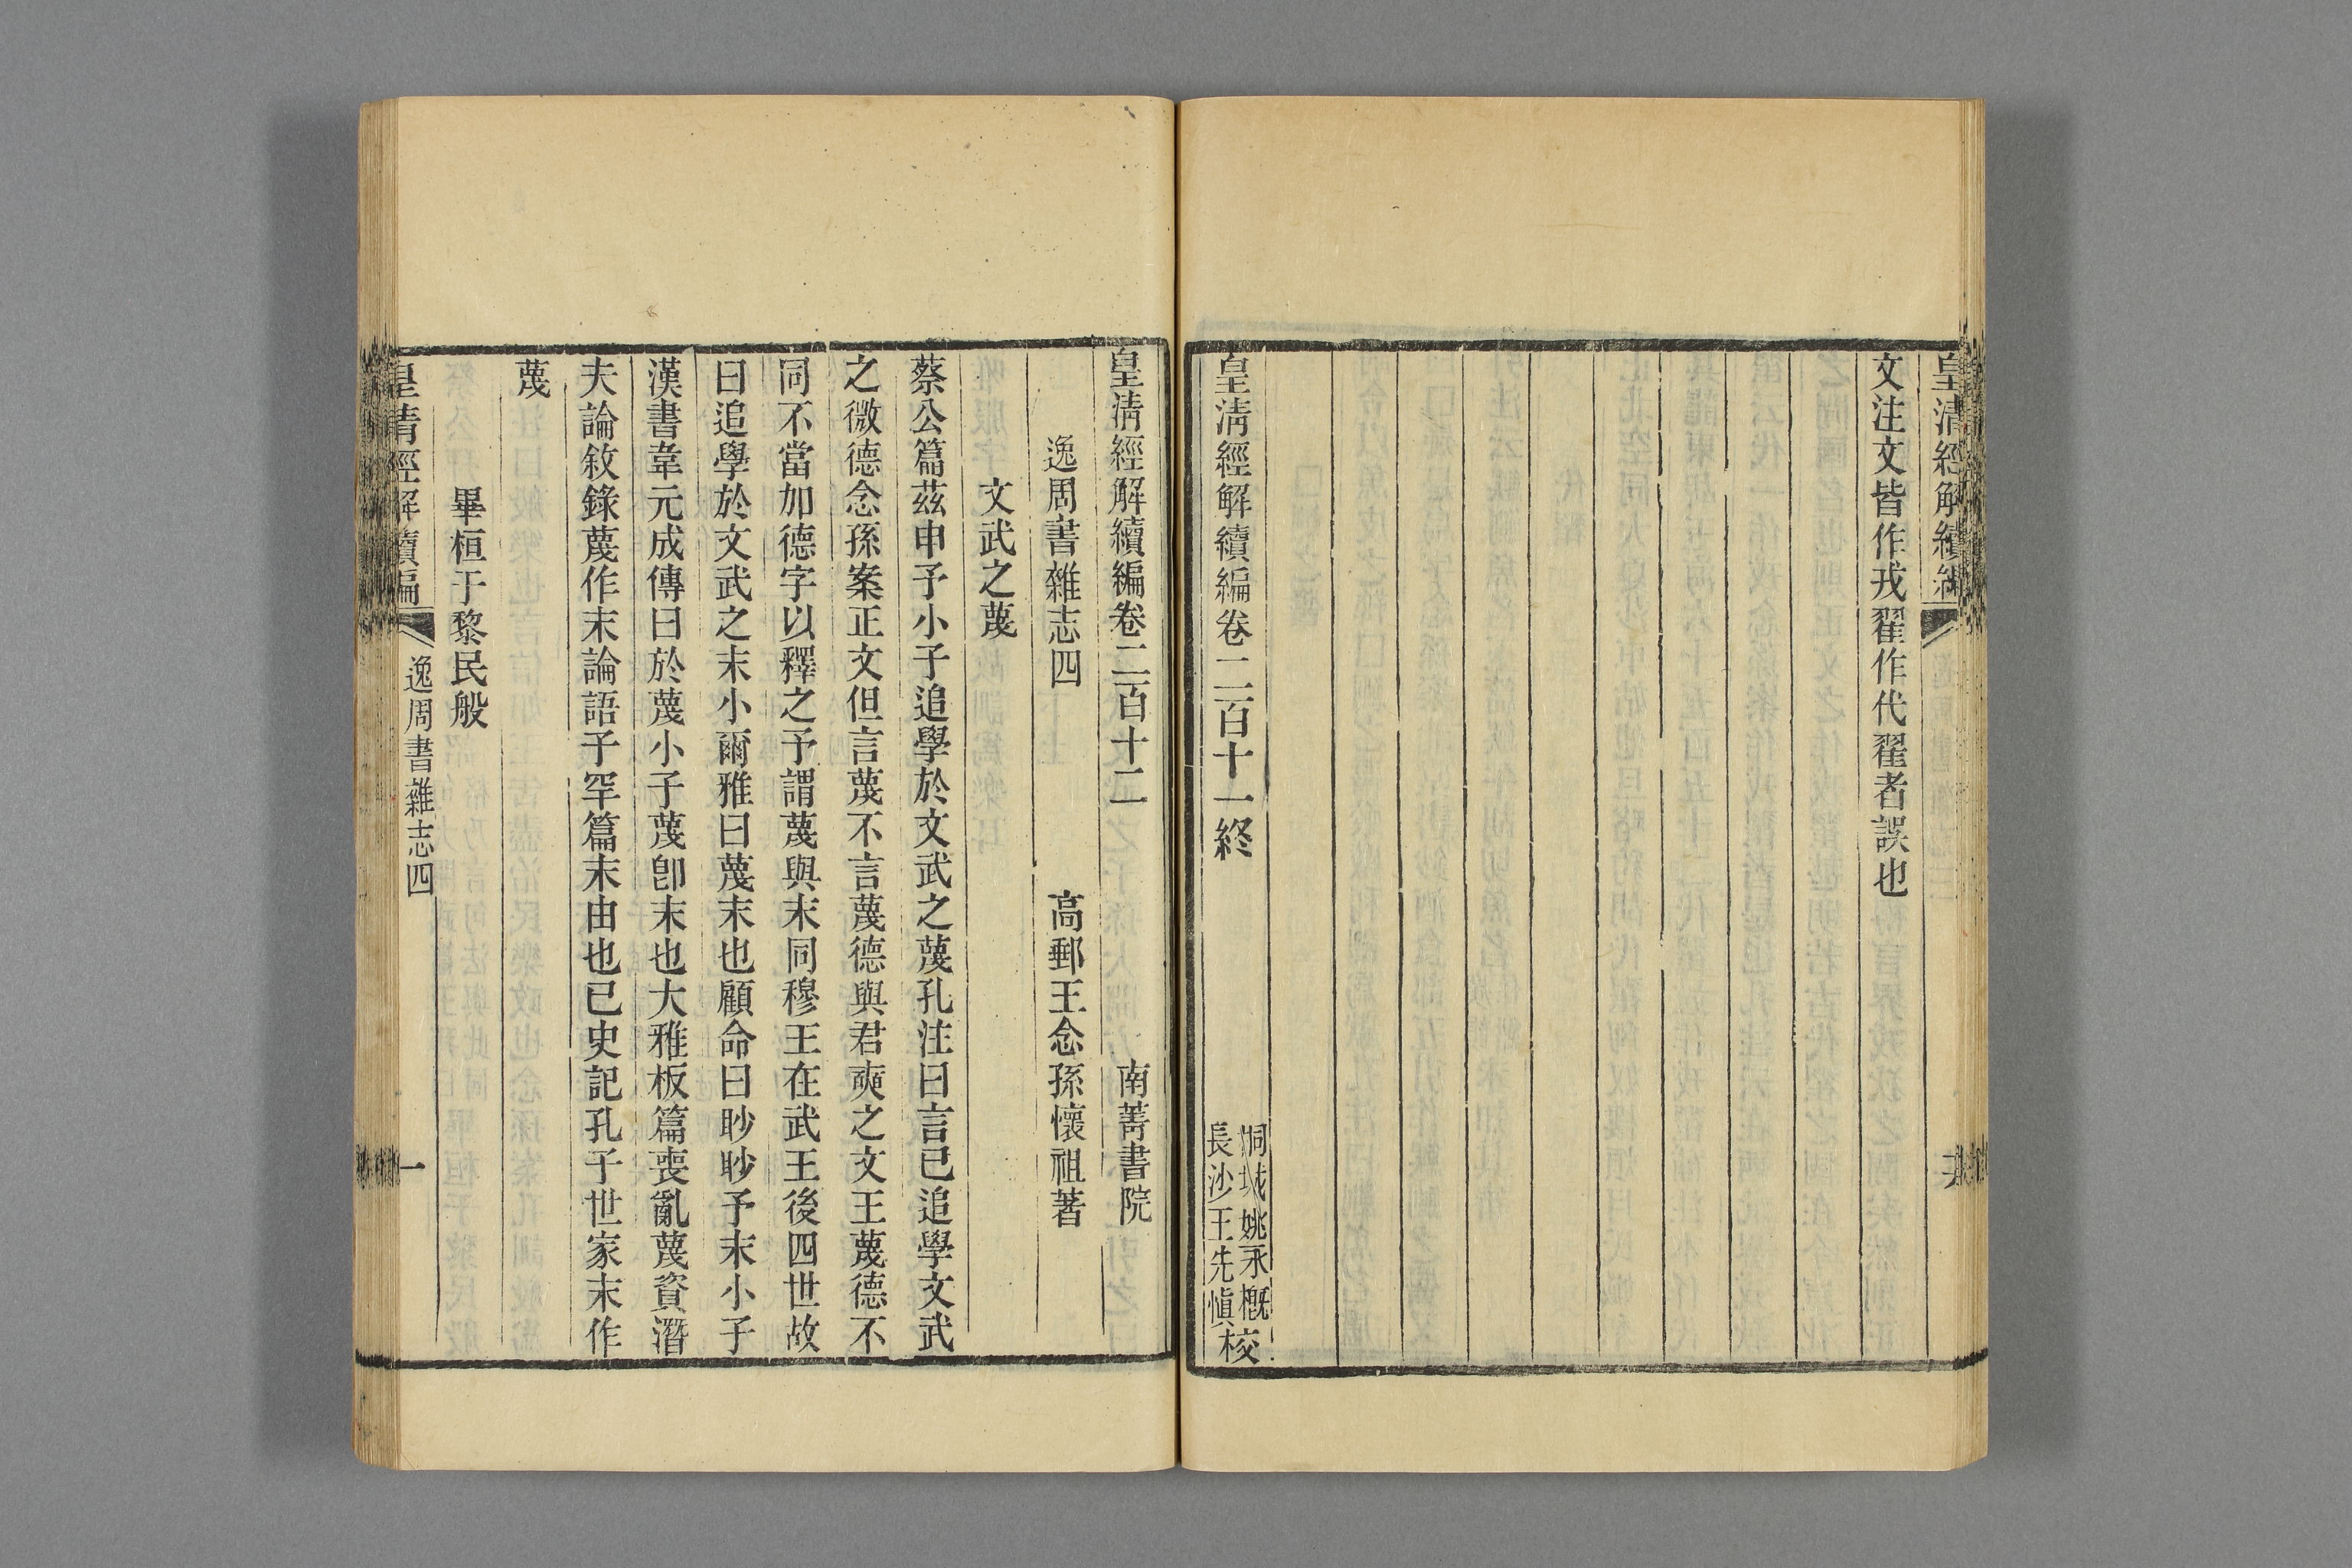 皇清經解續編
文注文皆作戎翟作代翟者誤也
皇淸經解續編卷二百十一終
桐城姚永槪
長沙王先愼
校
皇淸經解續編卷二百十二
南菁書院
逸周書雜志四
高郵王念孫懷祖著
文武之蔑
蔡公篇茲申予小子追學於文武之蔑孔注曰言已追學文武
之微德念孫案正文但言蔑不言蔑德與君奭之文王蔑德不
同不當加德字以釋之予謂蔑與末同穆王在武王後四世故
曰追學於文武之末小爾雅曰蔑末也顧命曰眇眇予末小子
漢書韋元成傳曰於蔑小子蔑卽末也大雅板篇喪亂蔑資潛
夫論敘錄蔑作末論語子罕篇末由也已史記孔子世家末作
蔑
畢桓于黎民般
皇淸經解續編
逸周書雜志四
一